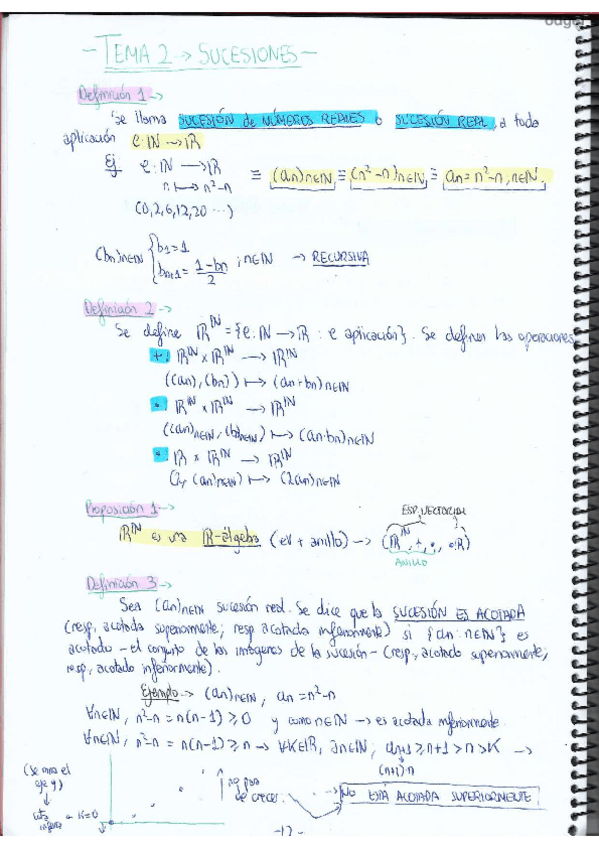 - TEMA 2 → SUCESIONES -
Definición 1 →
Se llama SUCESIÓN de NÚMEROS REALES o SUCESIÓN REAL, a toda
aplicación φ: ℕ → ℝ
Ej φ: ℕ → ℝ ≡ (an)n∈ℕ ≡ (n²-n)n∈ℕ ≡ an = n²-n, n∈ℕ
n ↦ n²-n
(0,2,6,12,20 ...)
(bn)n∈ℕ { b1 = 1
bn+1 = (1-bn)/2 ; n∈ℕ → RECURSIVA
Definición 2 →
Se define ℝ^ℕ = {φ: ℕ → ℝ : φ aplicación}. Se definen las operaciones
+ : ℝ^ℕ × ℝ^ℕ → ℝ^ℕ
((an), (bn)) ↦ (an+bn)n∈ℕ
• : ℝ^ℕ × ℝ^ℕ → ℝ^ℕ
((an)n∈ℕ, (bn)n∈ℕ) ↦ (an·bn)n∈ℕ
• ℝ × ℝ^ℕ → ℝ^ℕ
(λ, (an)n∈ℕ) ↦ (λan)n∈ℕ
Proposición 1 →
ESP. VECTORIAL
ℝ^ℕ es una ℝ-álgebra (ev + anillo) → (ℝ^ℕ, +, •, •ℝ)
ANILLO
Definición 3 →
Sea (an)n∈ℕ sucesión real. Se dice que la SUCESIÓN ES ACOTADA
(resp, acotada superiormente; resp acotada inferiormente) si {an: n∈ℕ} es
acotado - el conjunto de las imágenes de la sucesión - (resp, acotado superiormente;
resp, acotado inferiormente).
Ejemplo → (an)n∈ℕ, an = n²-n
∀n∈ℕ, n²-n = n(n-1) ≥ 0 y como n∈ℕ → es acotada inferiormente.
∀n∈ℕ, n²-n = n(n-1) ≥ n → ∀K∈ℝ, ∃n∈ℕ; an+1 ≥ n+1 > n > K →
(n+1)·n
(Se mira el
eje y)
de crecer.
→ NO ESTÁ ACOTADA SUPERIORMENTE
K=0
-12-